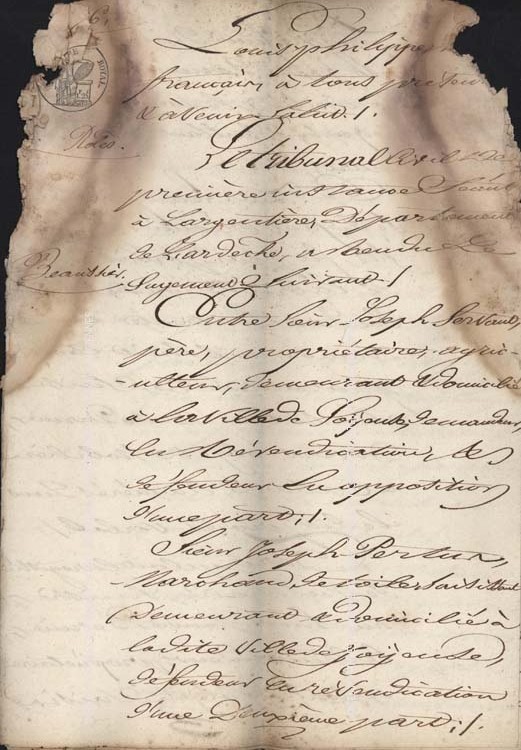 Louis philippe
français, à tous présens
& à venir Salut /.
Rôles.
Le tribunal Civil de
première instance Séant
à Largentière, Département
de L'ardèche, a Rendu Le
Jugement Suivant /
Entre Sieur Joseph Servant,
père, propriétaire, agri-
-culteur, demeurant & domicilié
à la ville de Joyeuse, demandeur
en Révendication, &
défendeur en opposition
d'une part; /.
Sieur Joseph
Marchand, de toiles
demeurant & domicilié à
la dite Ville de joyeuse,
défendeur en revendication
d'une Deuxième part; /.